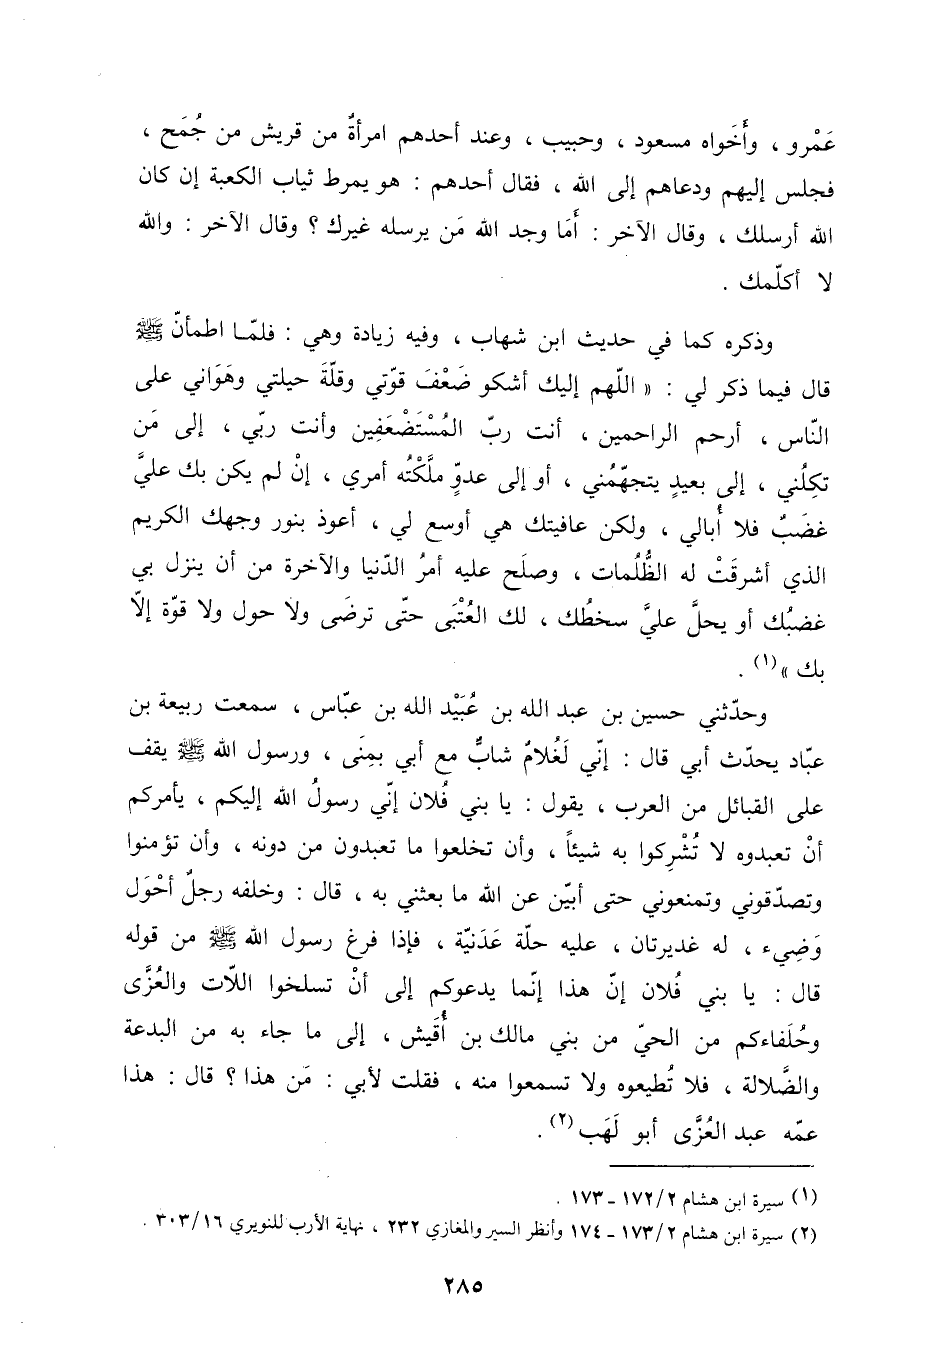 عَمْرو ، وأَخَواه مسعود ، وحبيب ، وعند أحدهم امرأةٌ من قريش من جُمَح ،
فجلس إليهم ودعاهم إلى الله ، فقال أحدهم : هو يمرط ثياب الكعبة إن كان
الله أرسلك ، وقال الآخر : أَمَا وجد الله مَن يرسله غيرك ؟ وقال الآخر : والله
لا أكلّمك .
وذكره كما في حديث ابن شهاب ، وفيه زيادة وهي : فلمّا اطمأنّ ﷺ
قال فيما ذكر لي : « اللّهم إليك أشكو ضَعْفَ قوّتي وقلّةَ حيلتي وهَوَاني على
النّاس ، أرحم الراحمين ، أنت ربّ المُسْتَضْعَفِين وأنت ربّي ، إلى مَن
تكِلُني ، إلى بعيدٍ يتجهّمُني ، أو إلى عدوٍّ ملَّكْتُه أمري ، إنْ لم يكن بك عليَّ
غضَبٌ فلا أُبالي ، ولكن عافيتك هي أوسع لي ، أعوذ بنور وجهك الكريم
الذي أشرقَتْ له الظُّلُمات ، وصلَح عليه أمرُ الدّنيا والآخرة من أن ينزل بي
غضبُك أو يحلَّ عليَّ سخطُك ، لك العُتْبَى حتّى ترضَى ولا حول ولا قوّة إلّا
بك »(١) .
وحدّثني حسين بن عبد الله بن عُبَيْد الله بن عبّاس ، سمعت ربيعة بن
عبّاد يحدّث أبي قال : إنّي لَغُلامٌ شابٌّ مع أبي بمِنَى ، ورسول الله ﷺ يقف
على القبائل من العرب ، يقول : يا بني فُلان إنّي رسولُ الله إليكم ، يأمركم
أنْ تعبدوه لا تُشْرِكوا به شيئاً ، وأن تخلعوا ما تعبدون من دونه ، وأن تؤمنوا
وتصدّقوني وتمنعوني حتى أبيّن عن الله ما بعثني به ، قال : وخلفه رجلٌ أحْوَل
وَضِيء ، له غديرتان ، عليه حلّة عَدَنيّة ، فإذا فرغ رسول الله ﷺ من قوله
قال : يا بني فُلان إنّ هذا إنّما يدعوكم إلى أنْ تسلخوا اللّات والعُزَّى
وحُلَفاءكم من الحيّ من بني مالك بن أُقَيش ، إلى ما جاء به من البدعة
والضَّلالة ، فلا تُطيعوه ولا تسمعوا منه ، فقلت لأبي : مَن هذا ؟ قال : هذا
عمّه عبد العُزَّى أبو لَهَب(٢) .
(١) سيرة ابن هشام ١٧٢/٢ ـ ١٧٣ .
(٢) سيرة ابن هشام ١٧٣/٢ ـ ١٧٤ وأنظر السير والمغازي ٢٣٢ ، نهاية الأرب للنويري ٣٠٣/١٦ .
٢٨٥